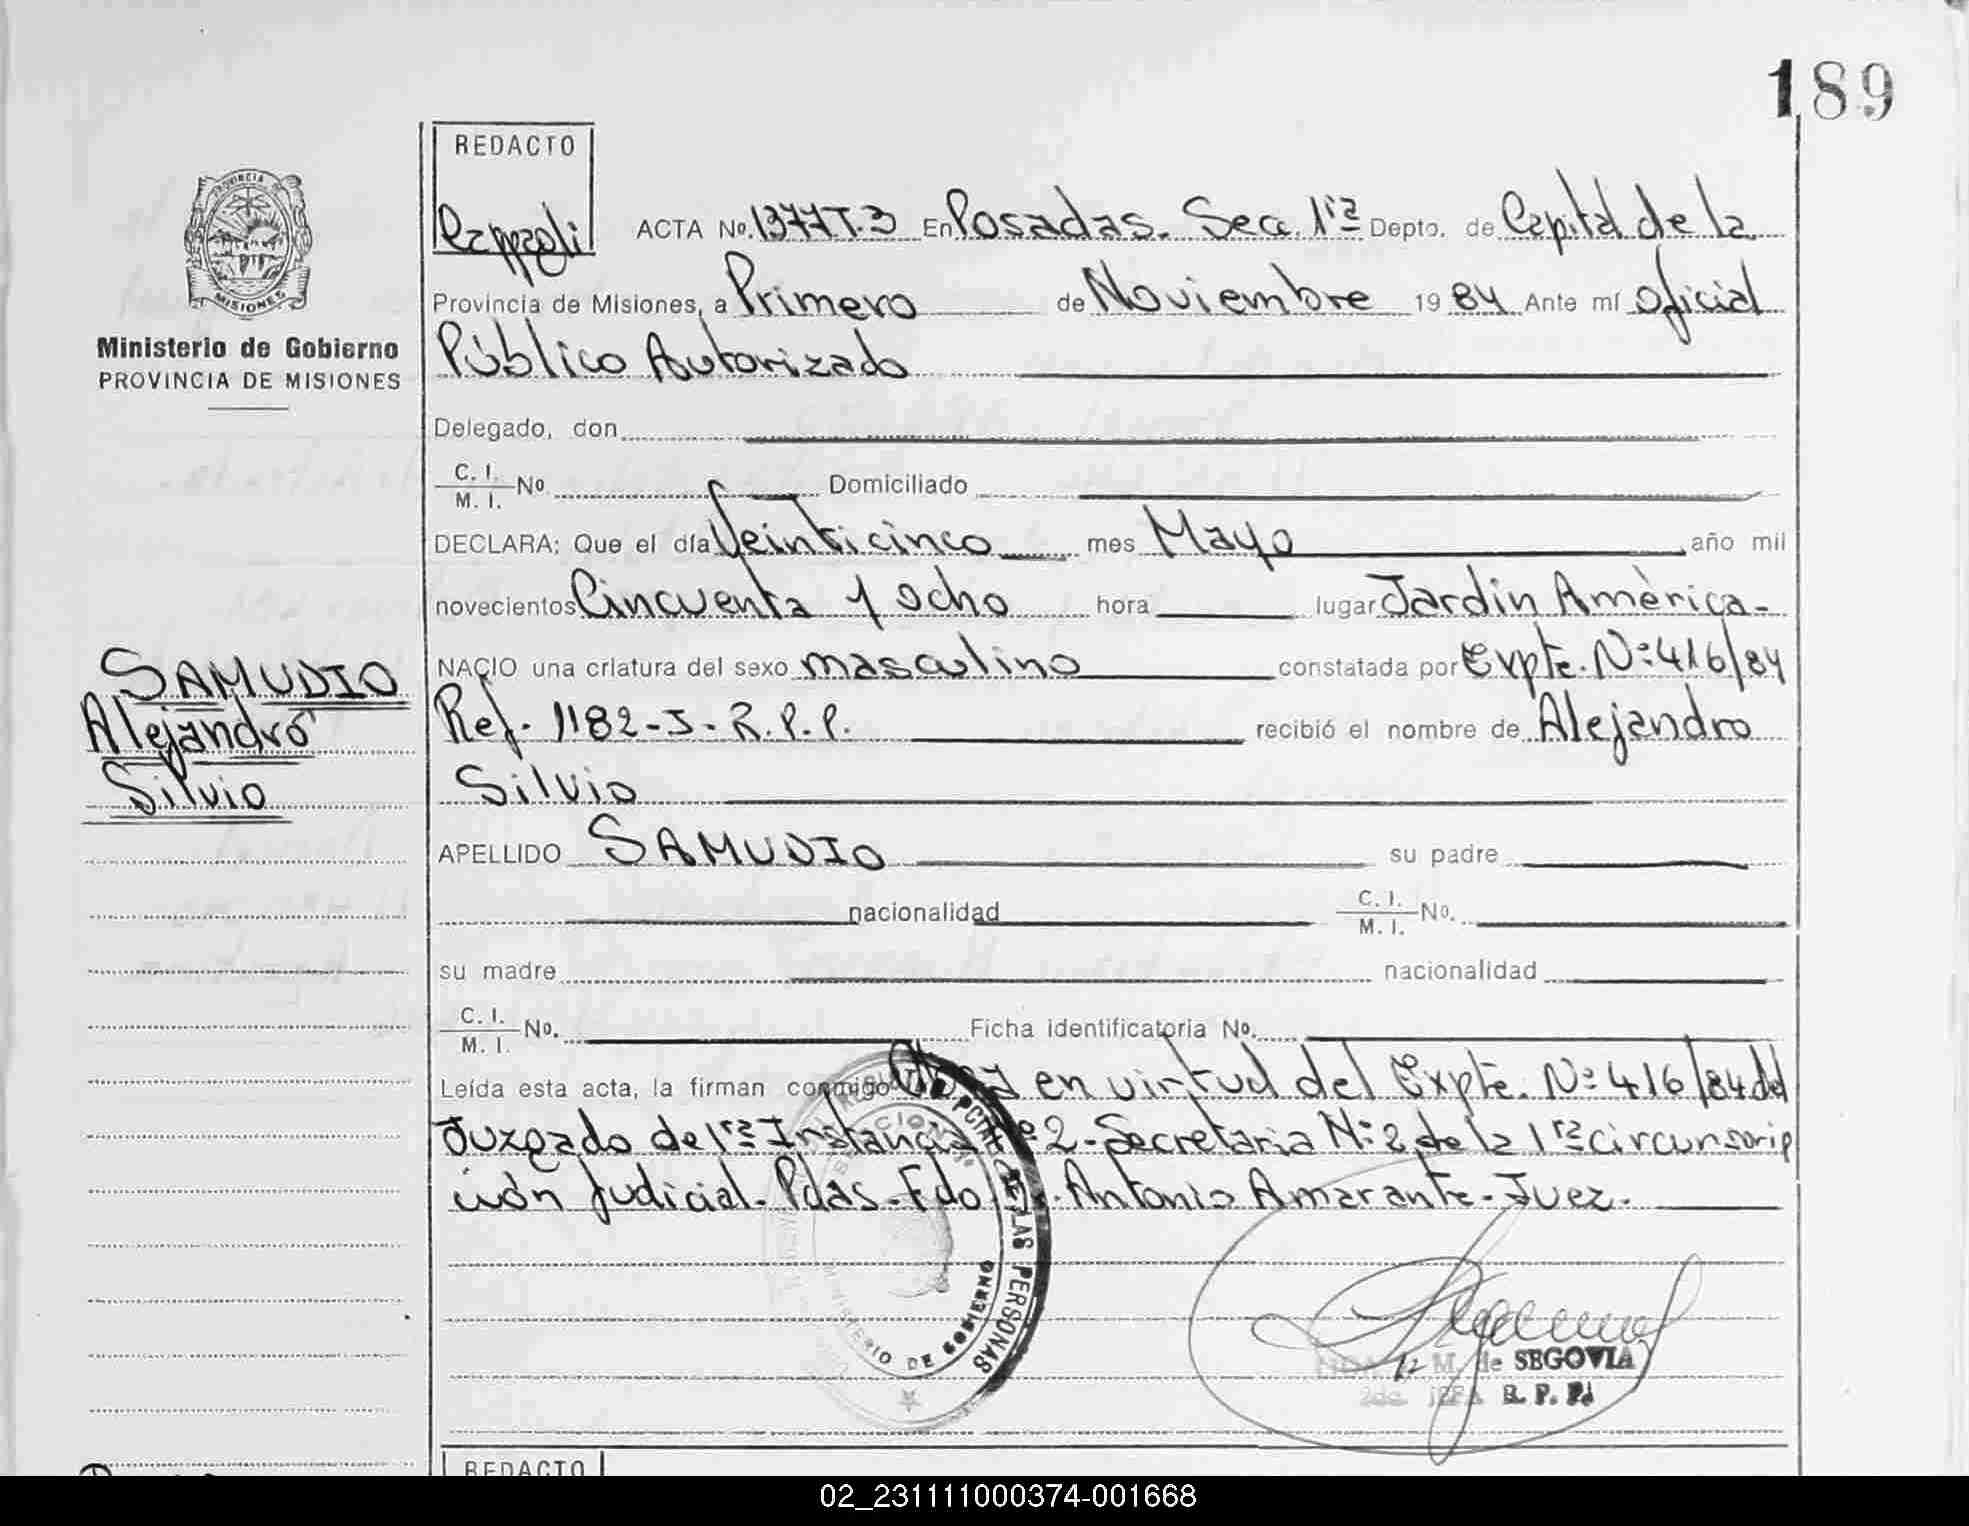 189
REDACTO
PROVINCIA DE
MISIONES
Ministerio de Gobierno
PROVINCIA DE MISIONES
ACTA No. 1377T.3 En Posadas. Secc. 1ra Depto. de Capital de la
Provincia de Misiones, a Primero de Noviembre 1984 Ante mí Oficial
Público Autorizado
Delegado, don
C. I.
M. I. No Domiciliado
DECLARA: Que el día Veinticinco mes Mayo año mil
novecientos Cincuenta y ocho hora lugar Jardin Amèrica-
NACIO una criatura del sexo masculino constatada por Expte. Nº 416/84
Ref. 1182-J-R.P.P. recibió el nombre de Alejandro
Silvio
SAMUDIO
Alejandro
Silvio
APELLIDO SAMUDIO su padre
nacionalidad C. I.
M. I. No.
su madre nacionalidad
C. I.
M. I. No. Ficha identificatoria No.
Leída esta acta, la firman conmigo en virtud del Expte. Nº 416/84 del
Juzgado de 1ra Instancia Nº 2-Secretaria Nº 2 de la 1ra circunscrip
ción Judicial. Pdas.-Fdo. Antonio Amarante-Juez.
DE LAS PERSONAS
MINISTERIO DE GOBIERNO
M. de SEGOVIA
2da. JEFA R. P. P.
REDACTO
02_231111000374-001668